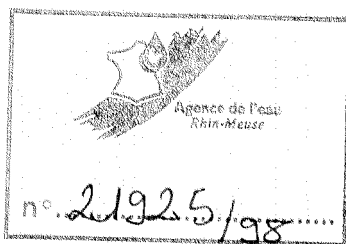 Agence de l'eau
Rhin-Meuse
n° 21925/98